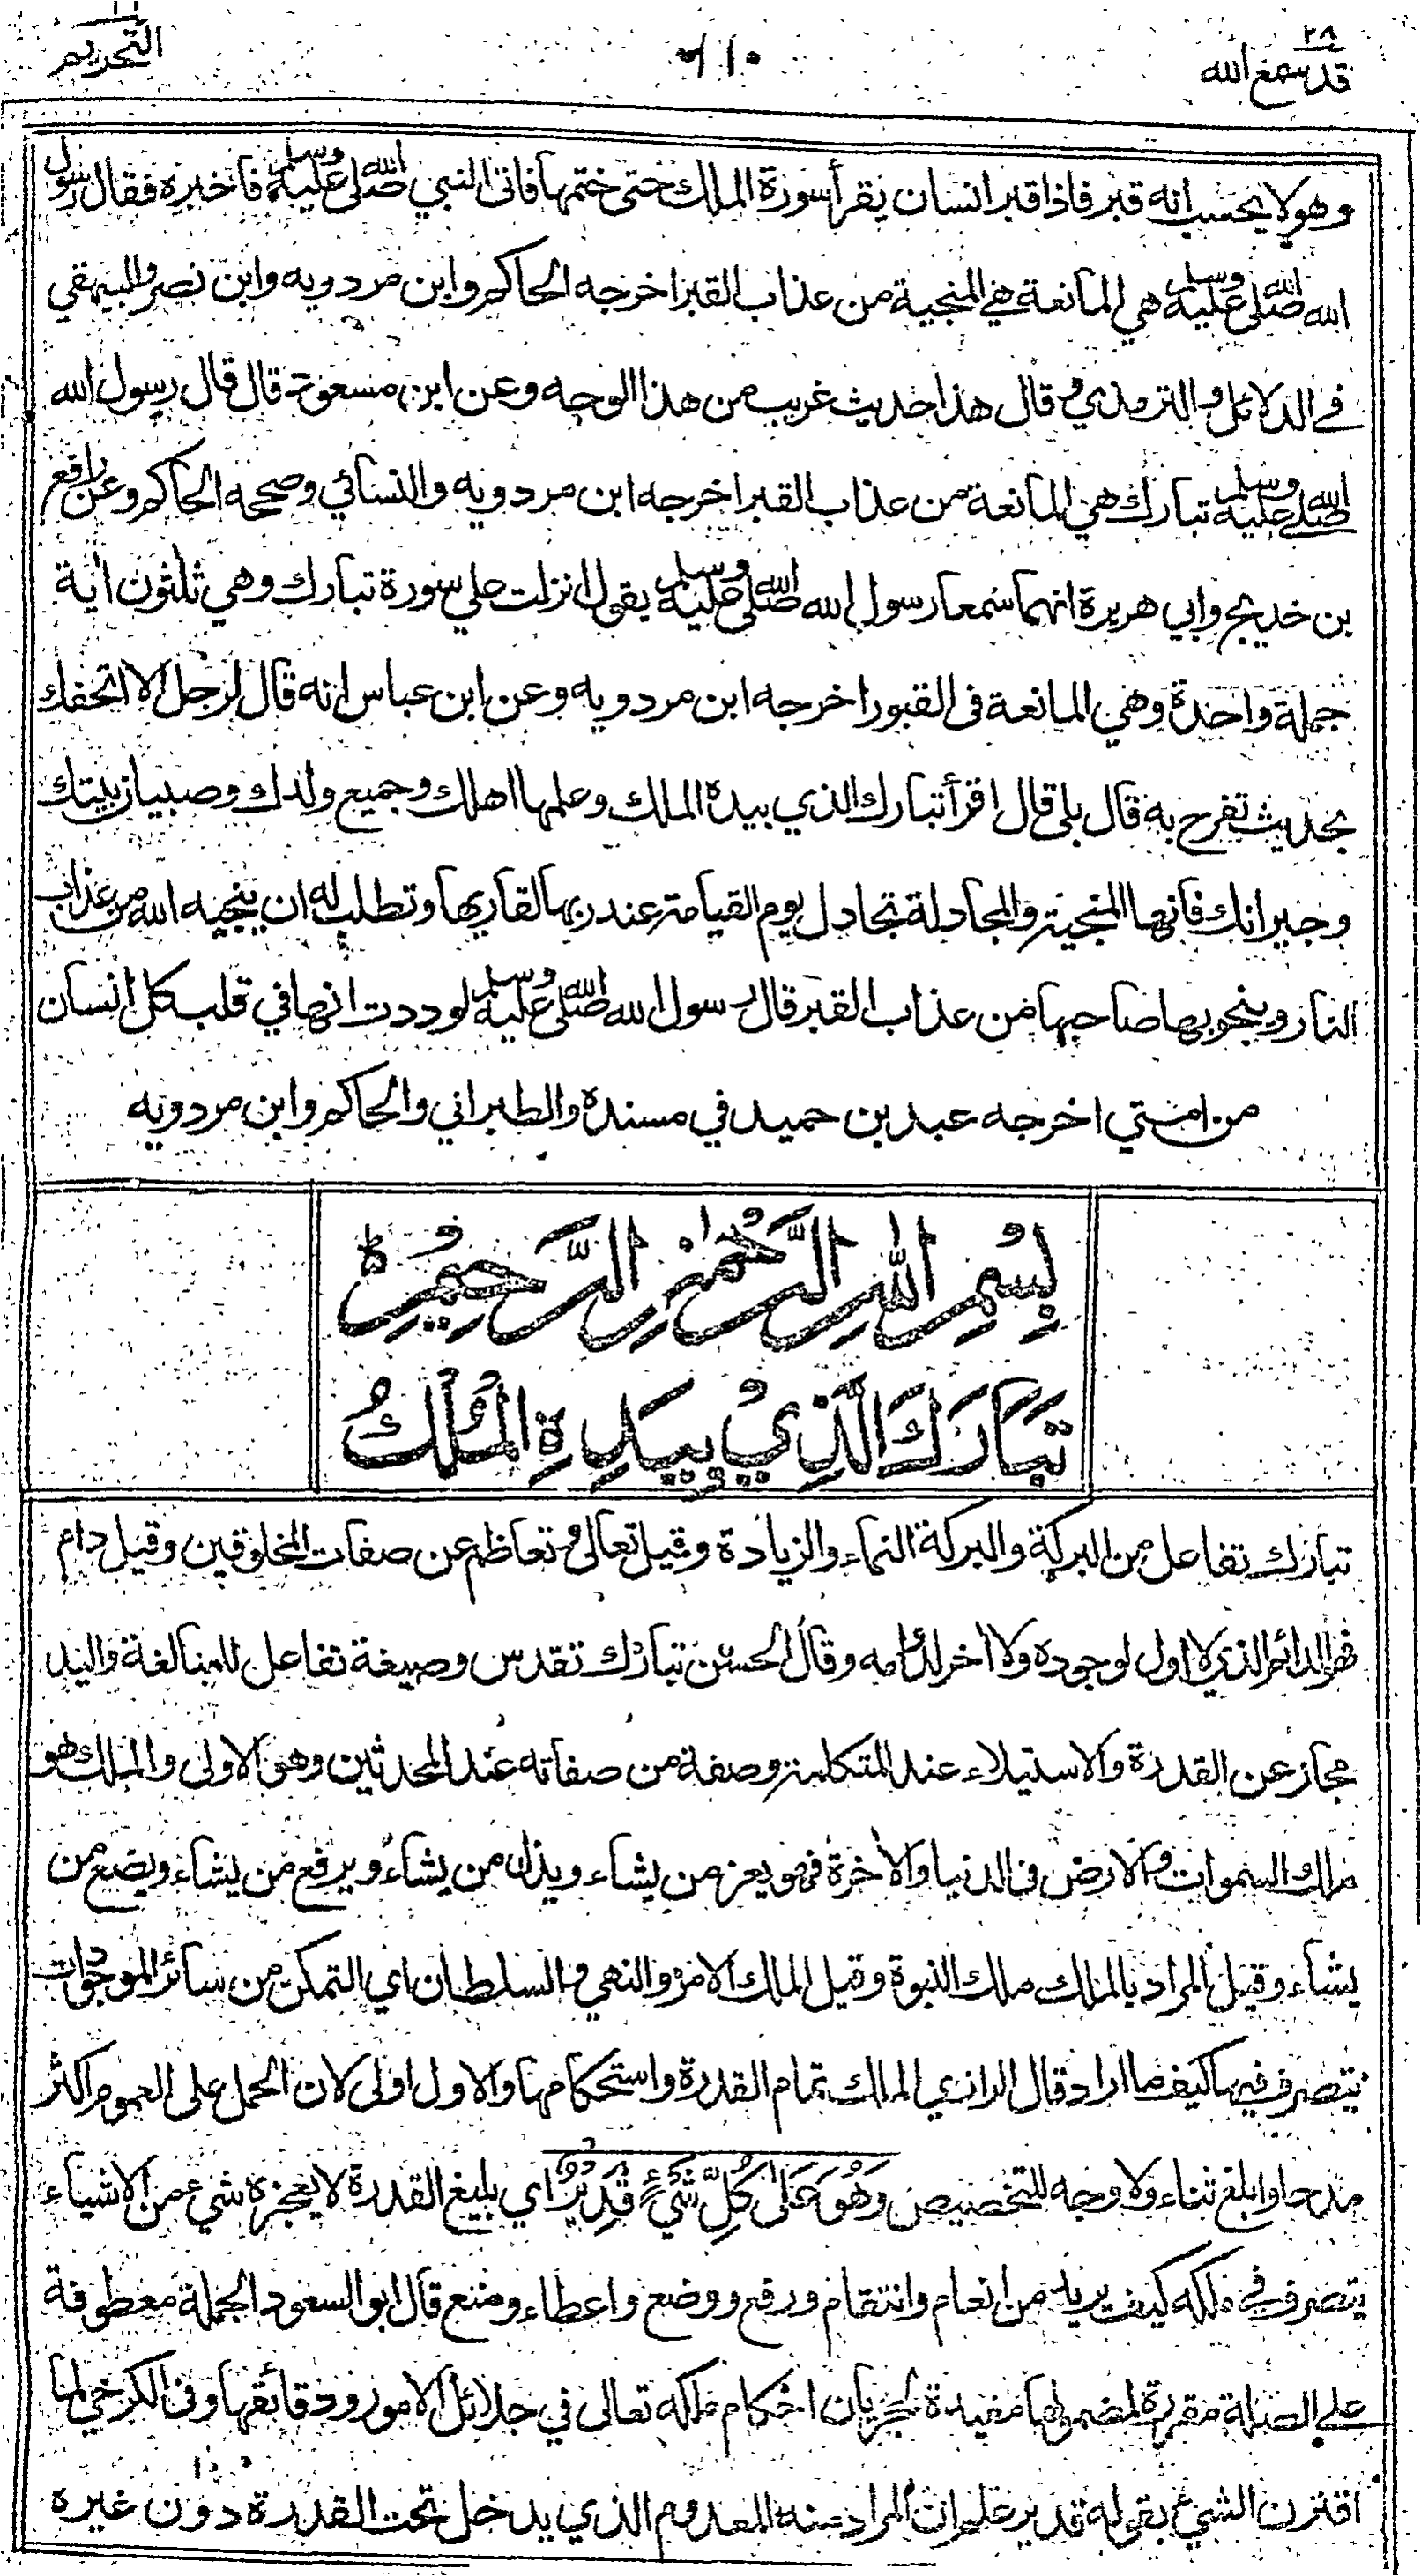 ٢٨
قد سمع الله
٦١٠
التحريم
وهو لا يحسب انه قبر فاذا قبر انسان يقرأ سورة الملك حتى ختمها فاتى النبي صلى الله عليه وسلم فاخبره فقال رسول
الله صلى الله عليه وسلم هي المانعة هي المنجية من عذاب القبر اخرجه الحاكم وابن مردويه وابن نصر والبيهقي
في الدلائل والترمذي وقال هذا حديث غريب من هذا الوجه وعن ابن مسعود قال قال رسول الله
صلى الله عليه وسلم تبارك هي المانعة من عذاب القبر اخرجه ابن مردويه والنسائي وصححه الحاكم وعن رافع
بن خديج وابي هريرة انهما سمعا رسول الله صلى الله عليه وسلم يقول انزلت علي سورة تبارك وهي ثلثون اية
جملة واحدة وهي المانعة فى القبور اخرجه ابن مردويه وعن ابن عباس انه قال لرجل الا اتحفك
بحديث تفرح به قال بلى قال اقرأ تبارك الذي بيده الملك وعلمها اهلك وجميع ولدك وصبيان بيتك
وجيرانك فانها المنجية والمجادلة تجادل يوم القيامة عند ربها لقاريها وتطلب له ان ينجيه الله من عذاب
النار وينجو بها صاحبها من عذاب القبر قال رسول الله صلى الله عليه وسلم لوددت انها في قلب كل انسان
من امتي اخرجه عبد بن حميد في مسنده والطبراني والحاكم وابن مردويه
بِسْمِ اللهِ الرَّحْمٰنِ الرَّحِيْمِ
تَبَارَكَ الَّذِيْ بِيَدِهِ الْمُلْكُ
تبارك تفاعل من البركة والبركة النماء والزيادة وقيل تعالى وتعاظم عن صفات المخلوقين وقيل دام
فهو الدائم الذي لا اول لوجوده ولا اخر لدوامه وقال الحسن تبارك تقدس وصيغة تفاعل للمبالغة واليد
مجاز عن القدرة والاستيلاء عند المتكلمة وصفة من صفاته عند المحدثين وهو الاولى والملك هو
ملك السموات والارض فى الدنيا والاخرة فهو يعز من يشاء ويذل من يشاء ويرفع من يشاء ويضع من
يشاء وقيل المراد بالملك ملك النبوة وقيل الملك الامر والنهي والسلطان اي التمكن من سائر الموجودات
يتصرف فيها كيفما اراد قال الرازي الملك تمام القدرة واستحكامها والاول اولى لان الحمل على العموم اكثر
مدحا وابلغ ثناء ولا وجه للتخصيص وَهُوَ عَلٰى كُلِّ شَيْءٍ قَدِيْرٌ اي بليغ القدرة لا يعجزه شيء من الاشياء
يتصرف في ملكه كيف يريد من انعام وانتقام ورفع ووضع واعطاء ومنع قال ابو السعود الجملة معطوفة
على الصلة مقررة لمضمونها مفيدة لجريان احكام ملكه تعالى في جلائل الامور ودقائقها وفى الكرخي لما
اقترن الشيء بقوله قدير علم ان المراد منه المعدوم الذي يدخل تحت القدرة دون غيره